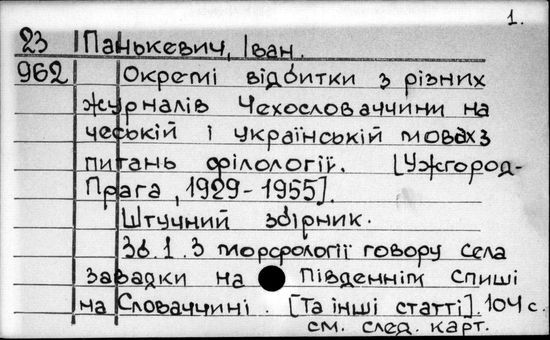 1.
23 Панькевич, Іван.
962 Окремі відбитки з різних
журналів Чехословаччини на
чеській і українській мовах з
питань філології. [Ужгород-
Прага, 1929-1955].
Штучний збірник.
Зб. 1. З морфології говору села
Завадки на Південнім Спиші
на Словаччині. [Та інші статті]. 104 с.
см. след. карт.